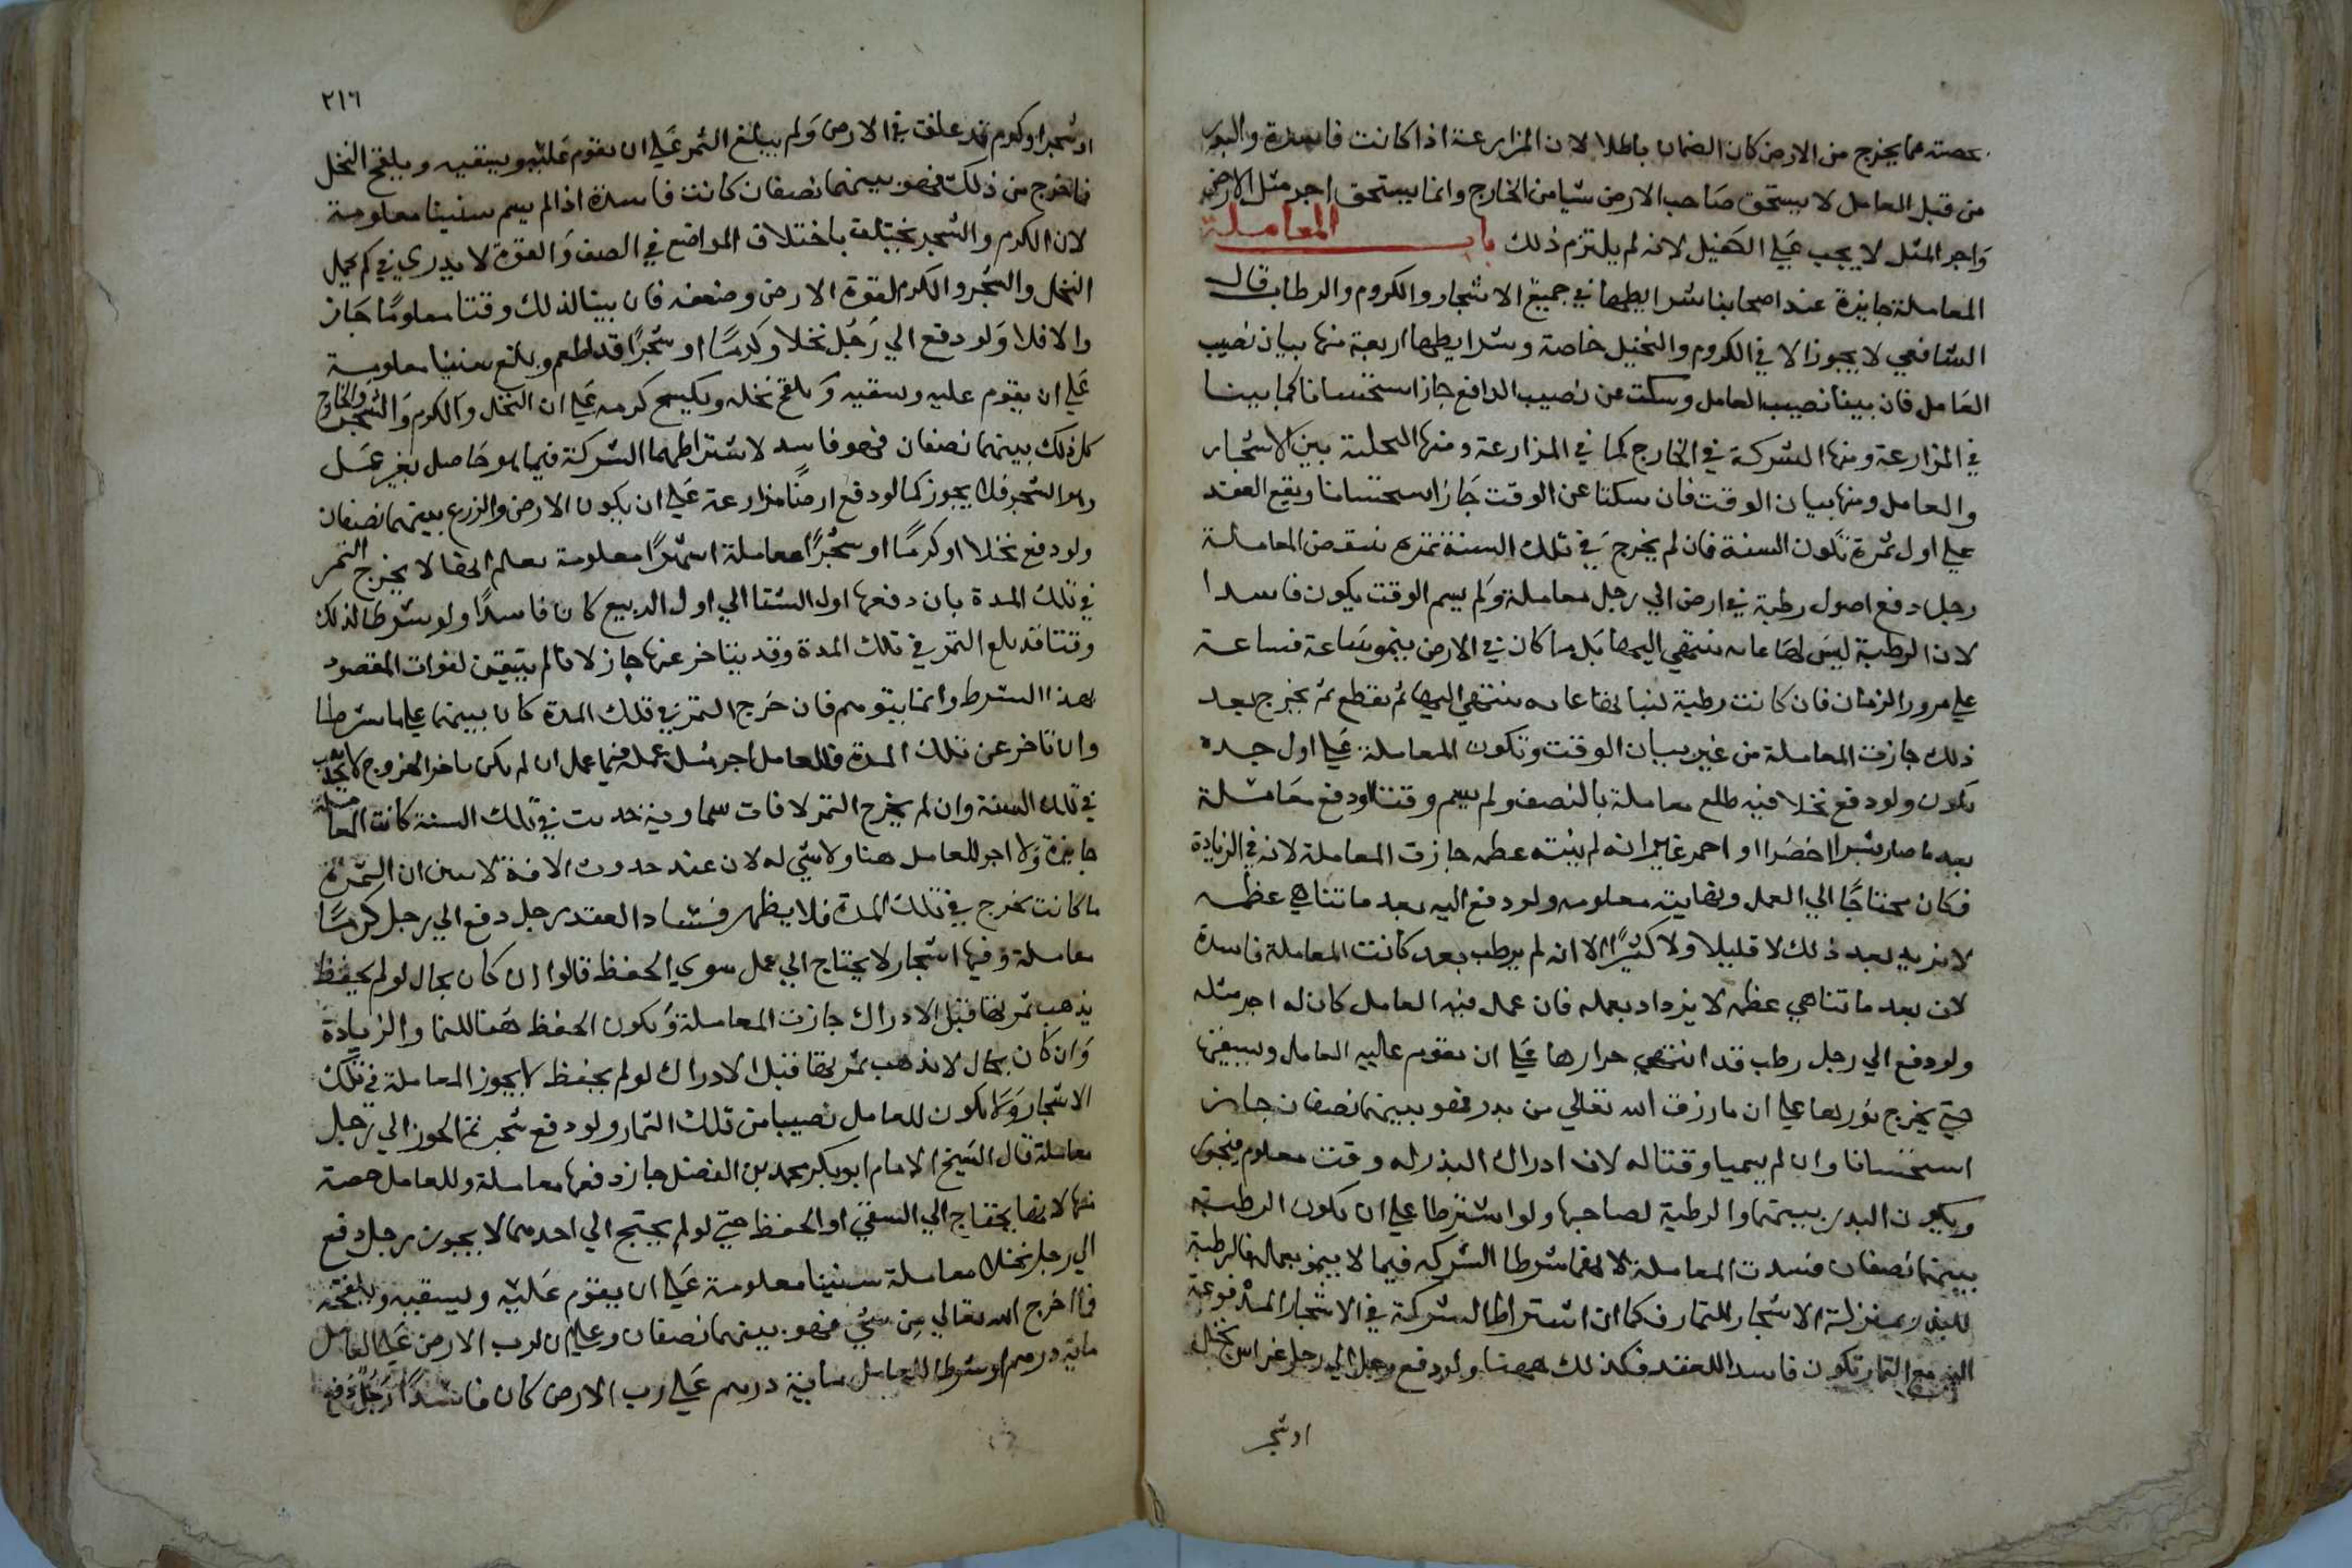 حصته مما يخرج من الارض كان الضمان باطلا لان المزارعة اذا كانت فاسدة والبذر
من قبل العامل لا يستحق صاحب الارض شيا من الخارج وانما يستحق اجر مثل الارض
واجر المثل لا يجب علي الكفيل لانه لم يلتزم ذلك باب المعاملة
المعاملة جايزة عند اصحابنا بشرايطها في جميع الاشجار والكروم والرطاب قال
الشافعي لا يجوز الا في الكروم والنخيل خاصة وشرايطها اربعة منها بيان نصيب
العامل فان بينا نصيب العامل وسكتا عن نصيب الدافع جاز استحسانا كما بينا
في المزارعة ومنها الشركة في الخارج كما في المزارعة ومنها التخلية بين الاشجار
والعامل ومنها بيان الوقت فان سكتا عن الوقت جاز استحسانا ويقع العقد
علي اول ثمرة تكون السنة فان لم يخرج في تلك السنة ثمره ينتقض المعاملة
رجل دفع اصول رطبة في ارض الي رجل معاملة ولم يسم الوقت يكون فاسدا
لان الرطبة ليس لها غاية ينتهي اليها بل ما كان في الارض ينمو ساعة فساعة
علي مرور الزمان فان كانت رطبة لنباتها غاية ينتهي اليها ثم يقطع ثم يخرج بعد
ذلك جازت المعاملة من غير بيان الوقت وتكون المعاملة علي اول جده
يكون ولو دفع نخلا فيه طلع معاملة بالنصف ولم يسم وقتا او دفع معاملة
بعد ما صار بسرا اخضرا او احمر غير انه لم ينته عظمه جازت المعاملة لانه في الزيادة
فكان محتاجا الي العمل ونهايته معلومه ولو دفع اليه بعد ما تناهي عظمه
لا يزيد بعد ذلك لا قليلا ولا كثيرا الا انه لم يرطب بعد كانت المعاملة فاسدة
لان بعد ما تناهي عظمه لا يزداد بعمله فان عمل فيه العامل كان له اجر مثله
ولو دفع الي رجل رطب قد انتهي جزازها علي ان يقوم عليه العامل ويسقيها
حتي يخرج بزرها علي ان ما رزق الله تعالي من بذر فهو بينهما نصفان جاز
استحسانا وان لم يسميا وقتا له لان ادراك البذر له وقت معلوم فيجوز
ويكون البذر بينهما والرطبة لصاحبها ولو اشترطا علي ان يكون الرطبة
بينهما نصفان فسدت المعاملة لانهما شرطا الشركه فيما لا ينمو بعمله فالرطبة
للبذر بمنزلة الاشجار للثمار فكما ان اشتراط الشركة في الاشجار المدفوعة
اليه مع الثمار تكون فاسدا للعقد فكذلك ههنا ولو دفع رجل الي رجل غراس نخل
او شجر
٢١٦
او شجر او كرم قد علقت في الارض ولم يبلغ الثمر علي ان يقوم عليه ويسقيه ويلقح النخل
فما خرج من ذلك فهو بينهما نصفان كانت فاسدة اذا لم يسم سنينا معلومة
لان الكرم والشجر يختلف باختلاف المواضع في الضعف والقوة لا يدري في كم يحمل
النخل والشجر والكرم لقوة الارض وضعفه فان بينا لذلك وقتا معلوما جاز
والا فلا ولو دفع الي رجل نخلا وكرما او شجرا قد اطعم وبلغ سنينا معلومة
علي ان يقوم عليه ويسقيه ويلقح نخله ويكسح كرمه علي ان النخل والكرم والشجر والخارج
كل ذلك بينهما نصفان فهو فاسد لاشتراطهما الشركة فيما هو حاصل بغير عمل
وهو الشجر فلا يجوز كما لو دفع ارضا مزارعة علي ان يكون الارض والزرع بينهما نصفان
ولو دفع نخلا او كرما او شجرا معاملة اشهرا معلومة يعلم انها لا يخرج الثمر
في تلك المدة بان دفعها اول الشتا الي اول الربيع كان فاسدا ولو شرطا لذلك
وقتا قد يبلغ الثمر في تلك المدة وقد يتاخر عنها جاز لانا لم نتيقن لفوات المقصود
بهذا الشرط وانما يتوهم فان خرج الثمر في تلك المدة كان بينهما علي ما شرطا
وان تاخر عن تلك المدة فللعامل اجر مثل عمله فيما عمل ان لم يكن تاخر الخروج لا يحدث
في تلك السنة وان لم يخرج الثمر لافات سماوية حدثت في تلك السنة كانت المعاملة
جايزة ولا اجر للعامل هنا ولا شي له لان عند حدوث الافة لا يتبين ان الثمرة
ما كانت تخرج في تلك المدة فلا يظهر فساد العقد رجل دفع الي رجل كرما
معاملة وفيها اشجار لا يحتاج الي عمل سوي الحفظ قالوا ان كان بحال لو لم يحفظ
يذهب ثمرتها قبل الادراك جازت المعاملة ويكون الحفظ ههنا للنما والزيادة
وان كان بحال لا يذهب ثمرتها قبل الادراك لو لم يحفظ لا يجوز المعاملة في تلك
الاشجار ولا يكون للعامل نصيبا من تلك الثمار ولو دفع شجر الجوز الي رجل
معاملة قال الشيخ الامام ابو بكر محمد بن الفضل جاز دفعها معاملة وللعامل حصة
منها لانها يحتاج الي السقي او الحفظ حتي لو لم يحتج الي احدهما لا يجوز رجل دفع
الي رجل نخلا معاملة سنينا معلومة علي ان يقوم عليه ويسقيه ويلقحه
فما اخرج الله تعالي من شي فهو بينهما نصفان وعلي ان لرب الارض علي العامل
ماية درهم او شرطا للعامل ماية درهم علي رب الارض كان فاسدا رجل دفع